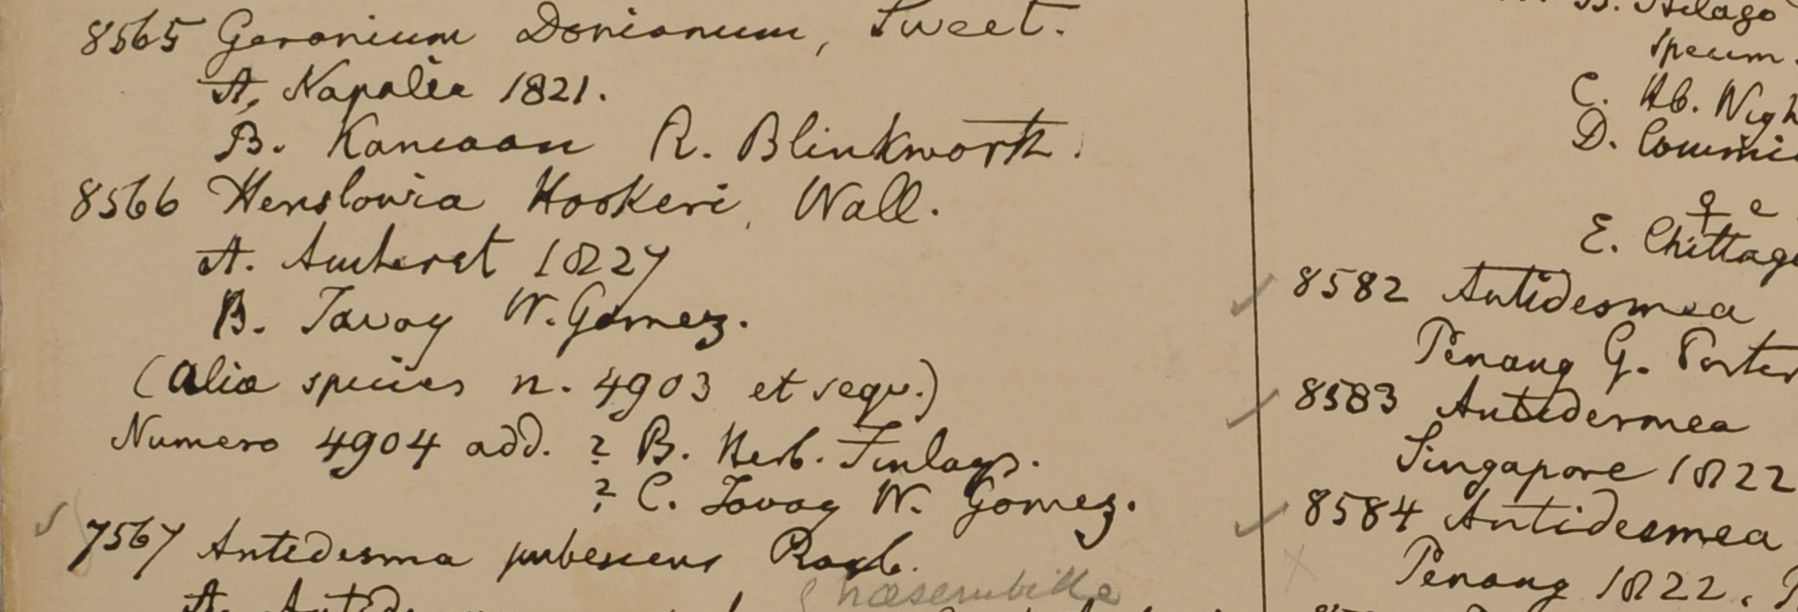 8565 Geranium Donianum, Sweet.
A. Napalia 1821.
B. Kamaon R. Blinkworth.
8566 Henslovia Hookeri, Wall.
A. Amherst 1827
B. Tavoy W. Gomez.
(alia species n. 4903 et sequ.)
Numero 4904 add. ? B. Herb. Finlays.
? C. Tavoy W. Gomez.
7567 Antidesma pubescens Roxb.
A.
specim.
C. Hb. Wigh
D.
♀ e
E. Chittago
8582 Antidesmea
Penang G. Porter
8583 Antidesmea
Singapore 1822
8584 Antidesmea
Penang 1822.